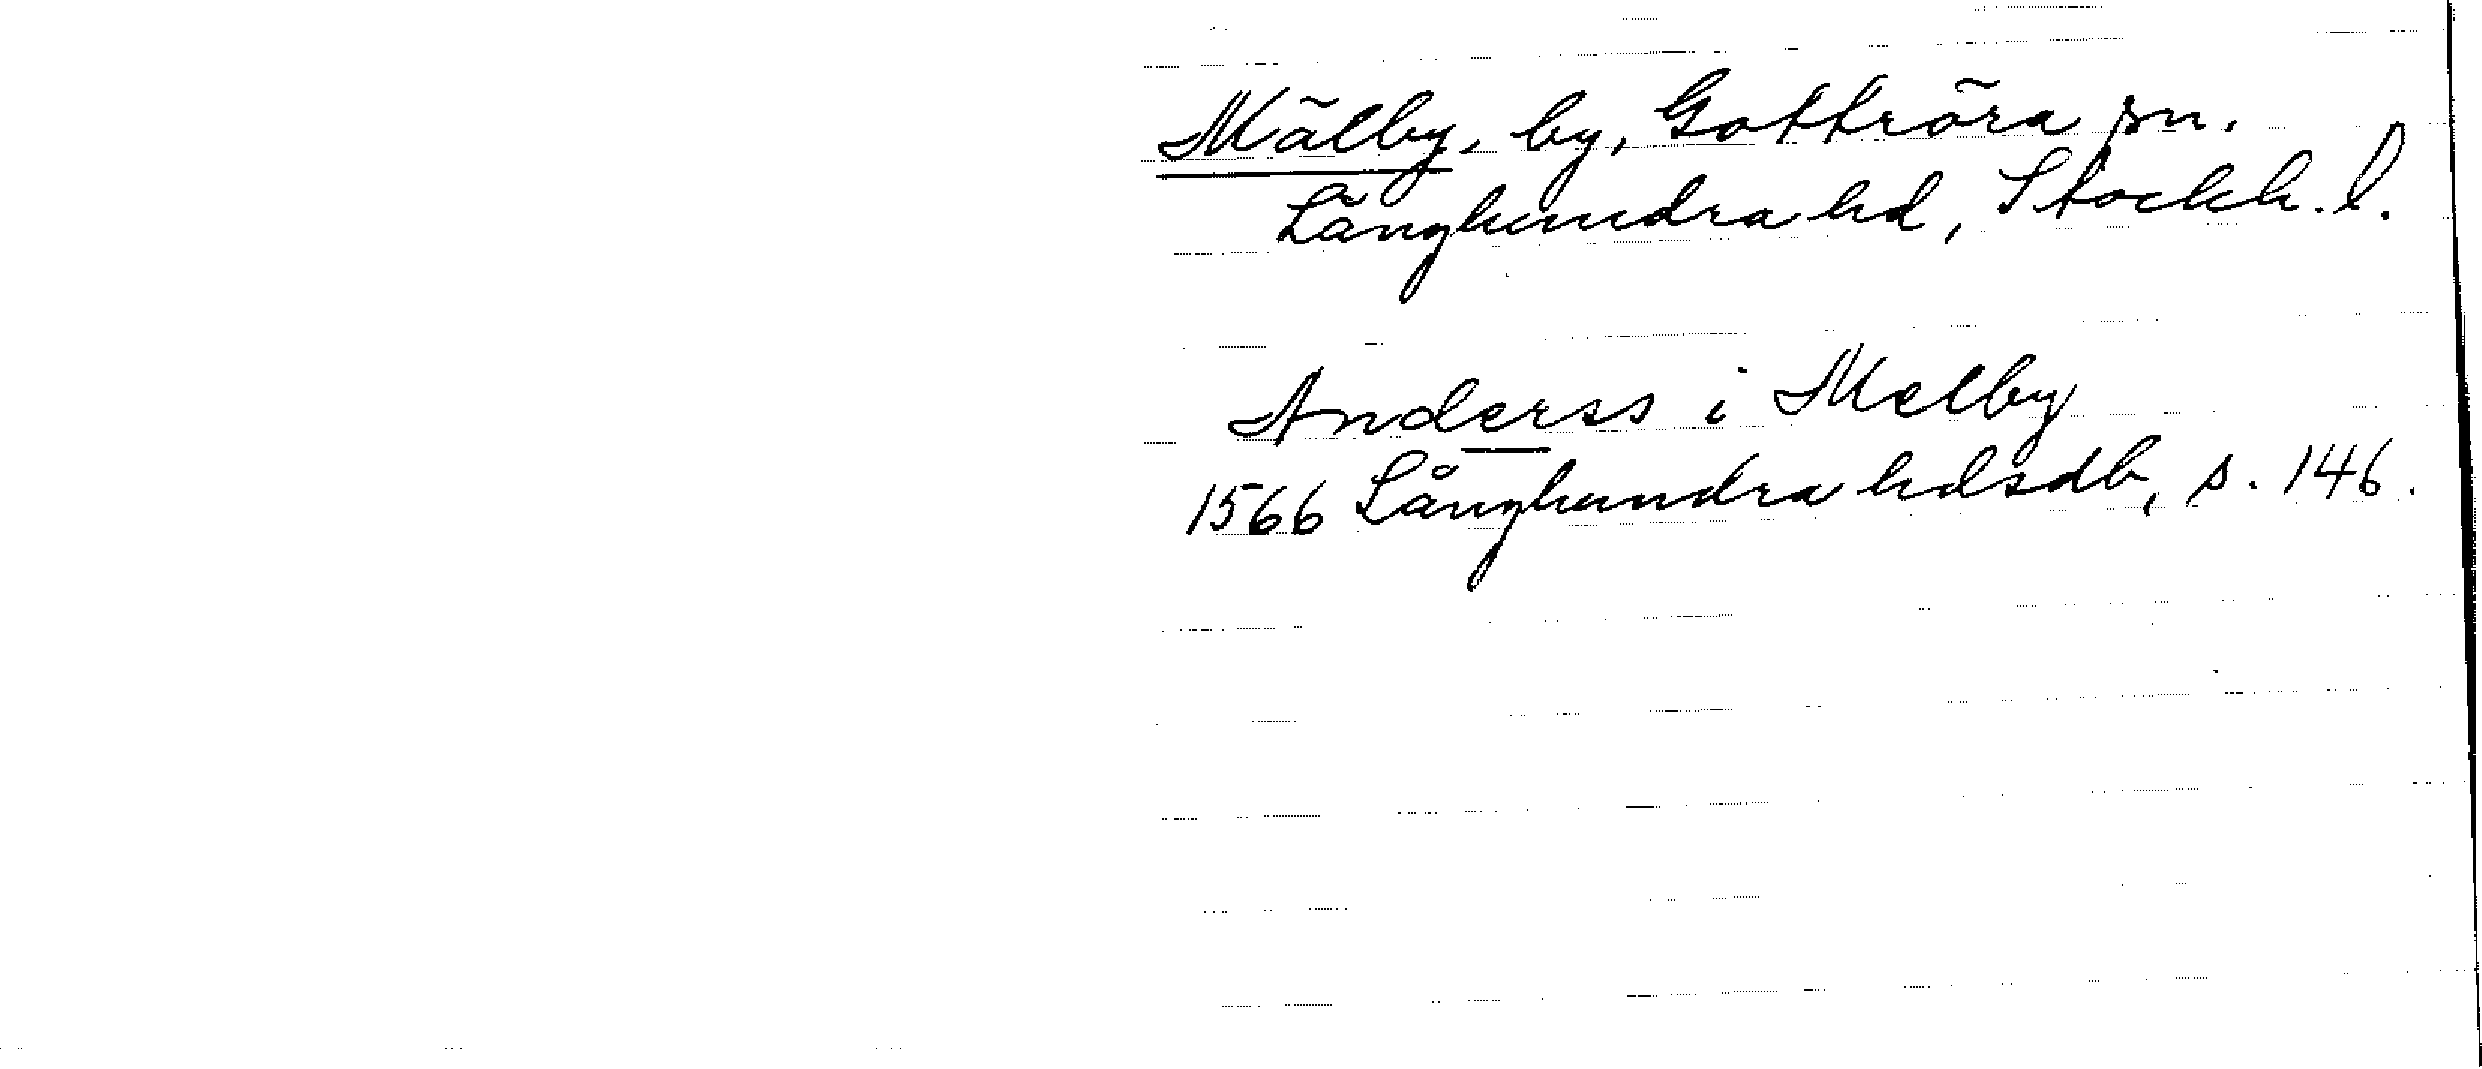 Mälby, by, Gottröra sn.
Långhundra hd, Stockh. l.
Anderss i Melby
1566 Långhundra hdsdb, s. 146.